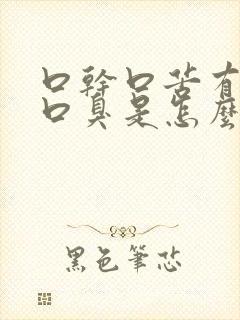 口幹口苦有
口臭是怎麼
黑色筆芯